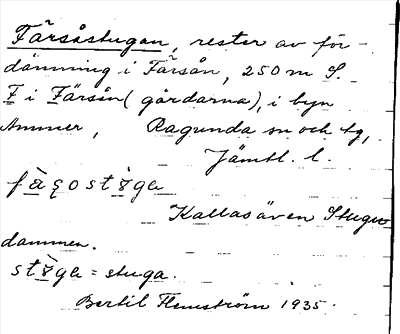 Färsåstugan, rester av för-
dämning i Färsån, 250 m S.
F i Färsån (gårdarna), i byn
Ammer, Ragunda sn och tg,
Jämtl. l.
Kallas även Stugu
dammen.
= stuga.
Bertil Flemström 1935.